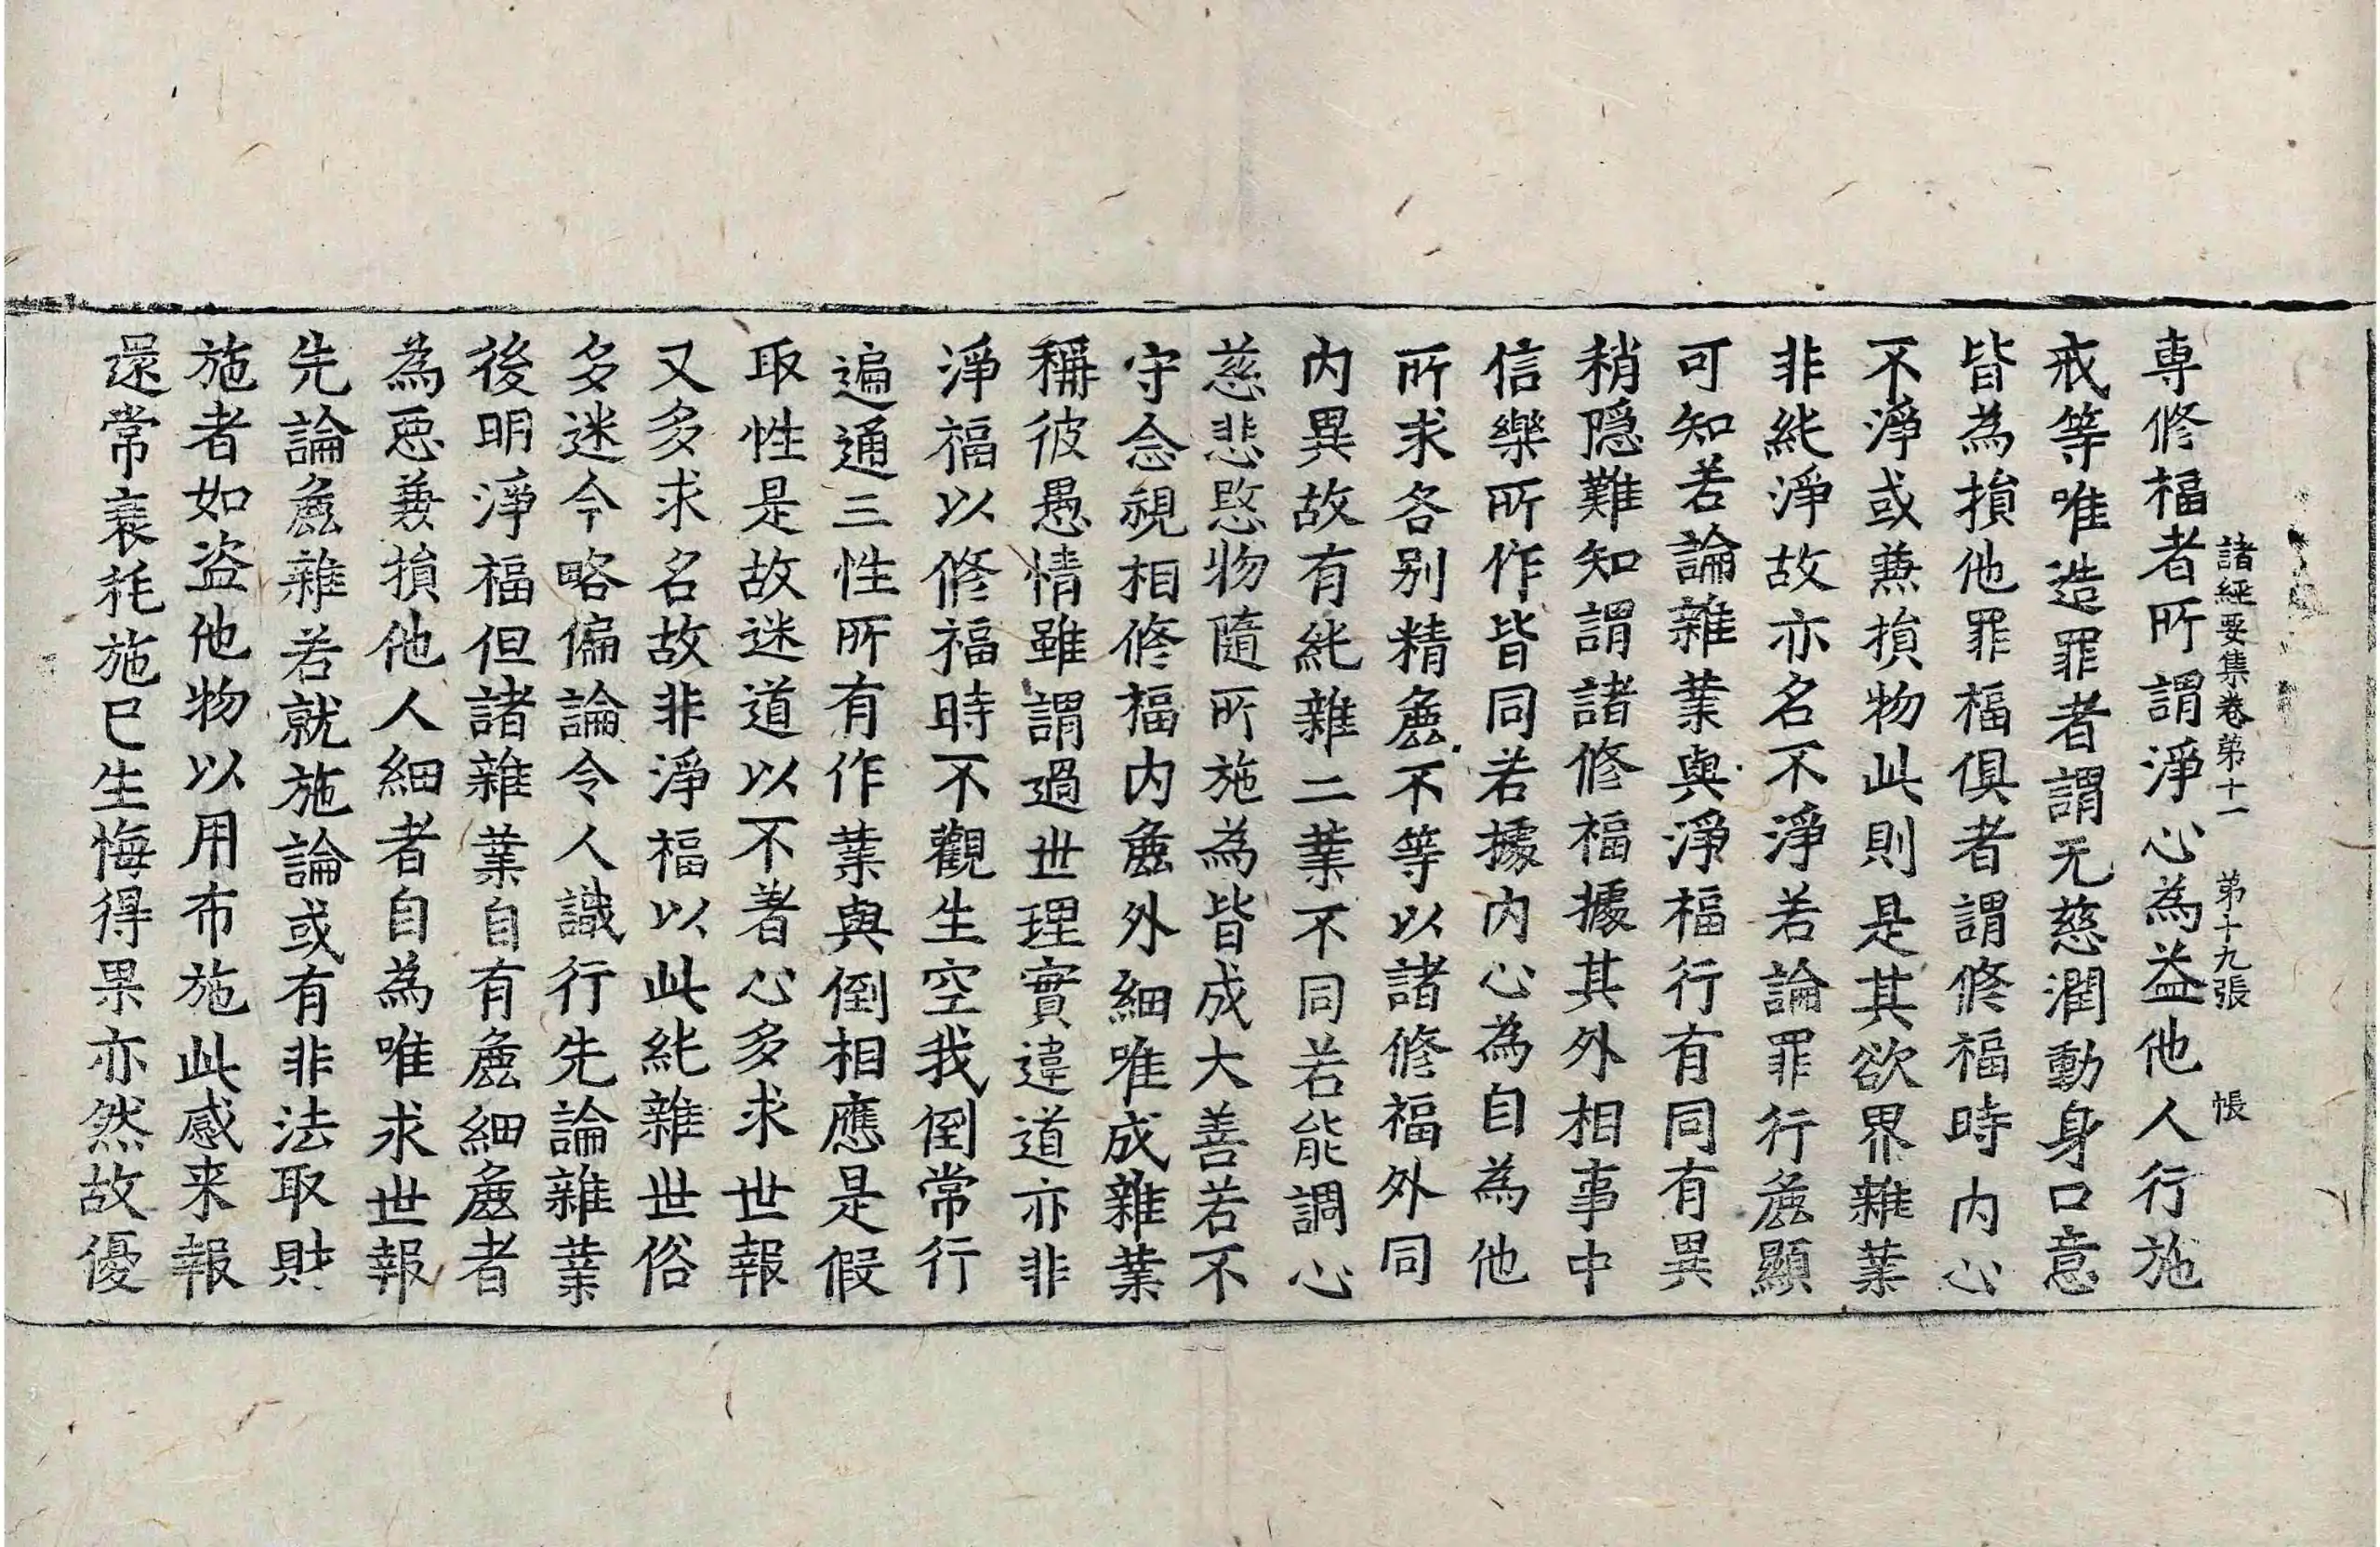 諸經要集卷苐十一　苐十九張　帳
専修福者所謂淨心為益他人行施
戒等唯造罪者謂无慈潤動身口意
皆為損他罪福俱者謂修福時内心
不淨或兼損物此則是其欲界雜業
非純淨故亦名不淨若論罪行麁顯
可知若論雜業與淨福行有同有異
稍隱難知謂諸修福據其外相事中
信樂所作皆同若據内心為自為他
所求各别精麁不等以諸修福外同
内異故有純雜二業不同若能調心
慈悲愍物隨所施為皆成大善若不
守念視相修福内麁外細唯成雜業
稱彼愚情雖謂過世理實違道亦非
淨福以修福時不觀生空我倒常行
遍通三性所有作業與倒相應是假
取性是故迷道以不著心多求世報
又多求名故非淨福以此純雜世俗
多迷今略偏論令人識行先論雜業
後明淨福但諸雜業自有麁細麁者
為惡兼損他人細者自為唯求世報
先論麁雜若就施論或有非法取財
施者如盜他物以用布施此感来報
還常衰耗施已生悔得果亦然故優